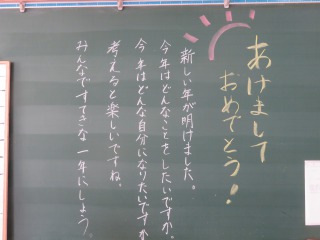 あけまして
おめでとう!
新しい年が明けました。
今年はどんなことをしたいですか。
今年はどんな自分になりたいですか
考えると楽しいですね。
みんなですてきな一年にしよう。